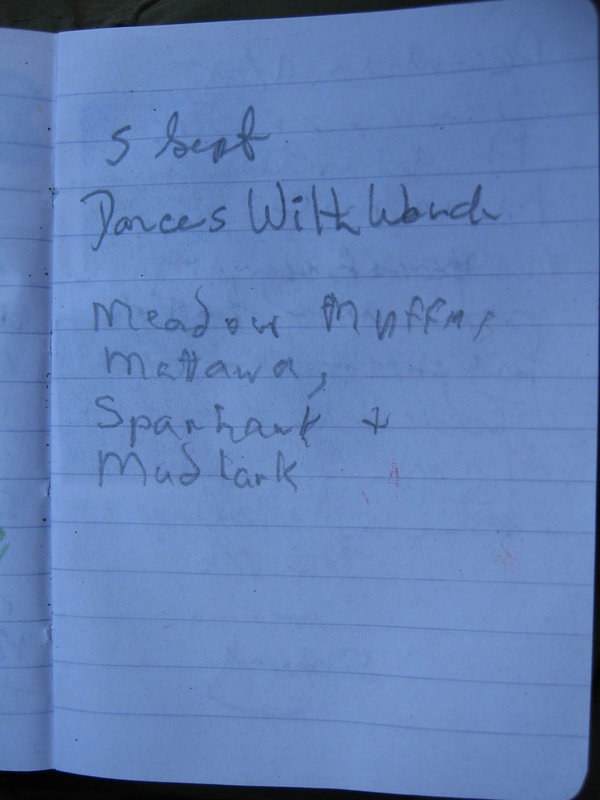 5 Sept
Dances With
Meadow Muffin,
Mattawa,
Sparhawk +
Mudlark